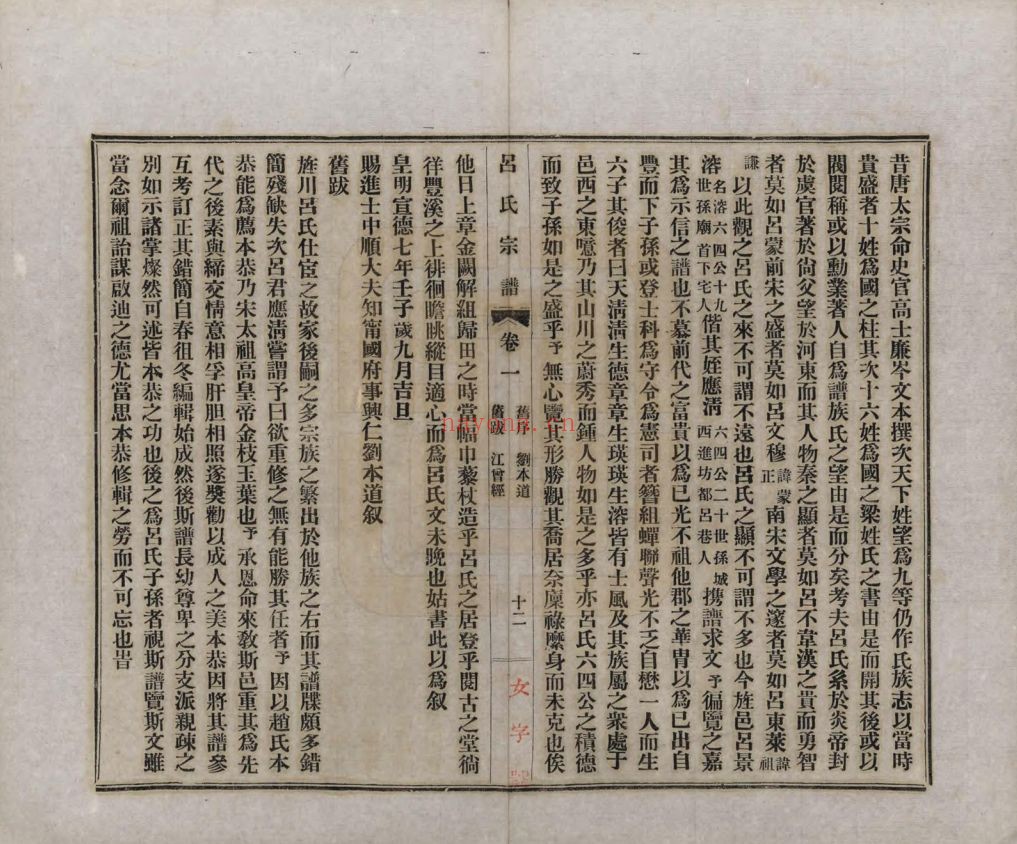 昔唐太宗命史官高士廉岑文本撰次天下姓望爲九等仍作氏族志以當時
貴盛者十姓爲國之柱其次十六姓爲國之梁姓氏之書由是而開其後或以
閥閱稱或以勳業著人自爲譜族氏之望由是而分矣考夫呂氏系於炎帝封
於虞官著於尙父望於河東而其人物秦之顯者莫如呂不韋漢之貴而勇智
者莫如呂蒙前宋之盛者莫如呂文穆諱蒙正南宋文學之邃者莫如呂東萊諱祖
謙以此觀之呂氏之來不可謂不遠也呂氏之顯不可謂不多也今旌邑呂景
溶名溶六四公十九世孫廟首下宅人偕其姪應淸六四公二十世孫城西進坊都呂巷人携譜求文予徧覽之嘉
其爲示信之譜也不慕前代之富貴以爲已光不祖他郡之華胄以爲已出自
豐而下子孫或登士科爲守令爲憲司者簪組蟬聯聲光不乏自懋一人而生
六子其俊者曰天淸淸生德章章生瑛瑛生溶皆有士風及其族屬之衆處于
邑西之東噫乃其山川之蔚秀而鍾人物如是之多乎亦呂氏六四公之積德
而致子孫如是之盛乎予無心覽其形勝觀其喬居奈廩祿縻身而未克也俟
呂氏宗譜
卷一
舊序 劉本道
舊跋 江曾經
十二
女字
他日上章金闕解組歸田之時當幅巾藜杖造乎呂氏之居登乎閱古之堂徜
徉豐溪之上徘徊瞻眺縱目適心而爲呂氏文未晚也姑書此以爲叙
皇明宣德七年壬子歲九月吉旦
賜進士中順大夫知甯國府事興仁劉本道叙
舊跋
旌川呂氏仕宦之故家後嗣之多宗族之繁出於他族之右而其譜牒頗多錯
簡殘缺失次呂君應淸嘗謂予曰欲重修之無有能勝其任者予因以趙氏本
恭能爲薦本恭乃宋太祖高皇帝金枝玉葉也予承恩命來敎斯邑重其爲先
代之後素與締交情意相孚肝胆相照遂獎勸以成人之美本恭因將其譜參
互考訂正其錯簡自春徂冬編輯始成然後斯譜長幼尊卑之分支派親疎之
別如示諸掌燦然可述皆本恭之功也後之爲呂氏子孫者視斯譜覽斯文雖
當念爾祖詒謀啟迪之德尤當思本恭修輯之勞而不可忘也旹